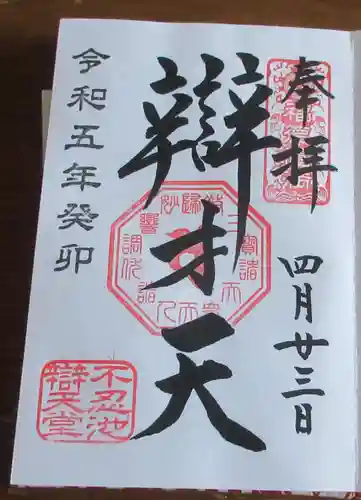 奉拝
四月廿三日
辯才天
令和五年癸卯
不忍池
辯天堂